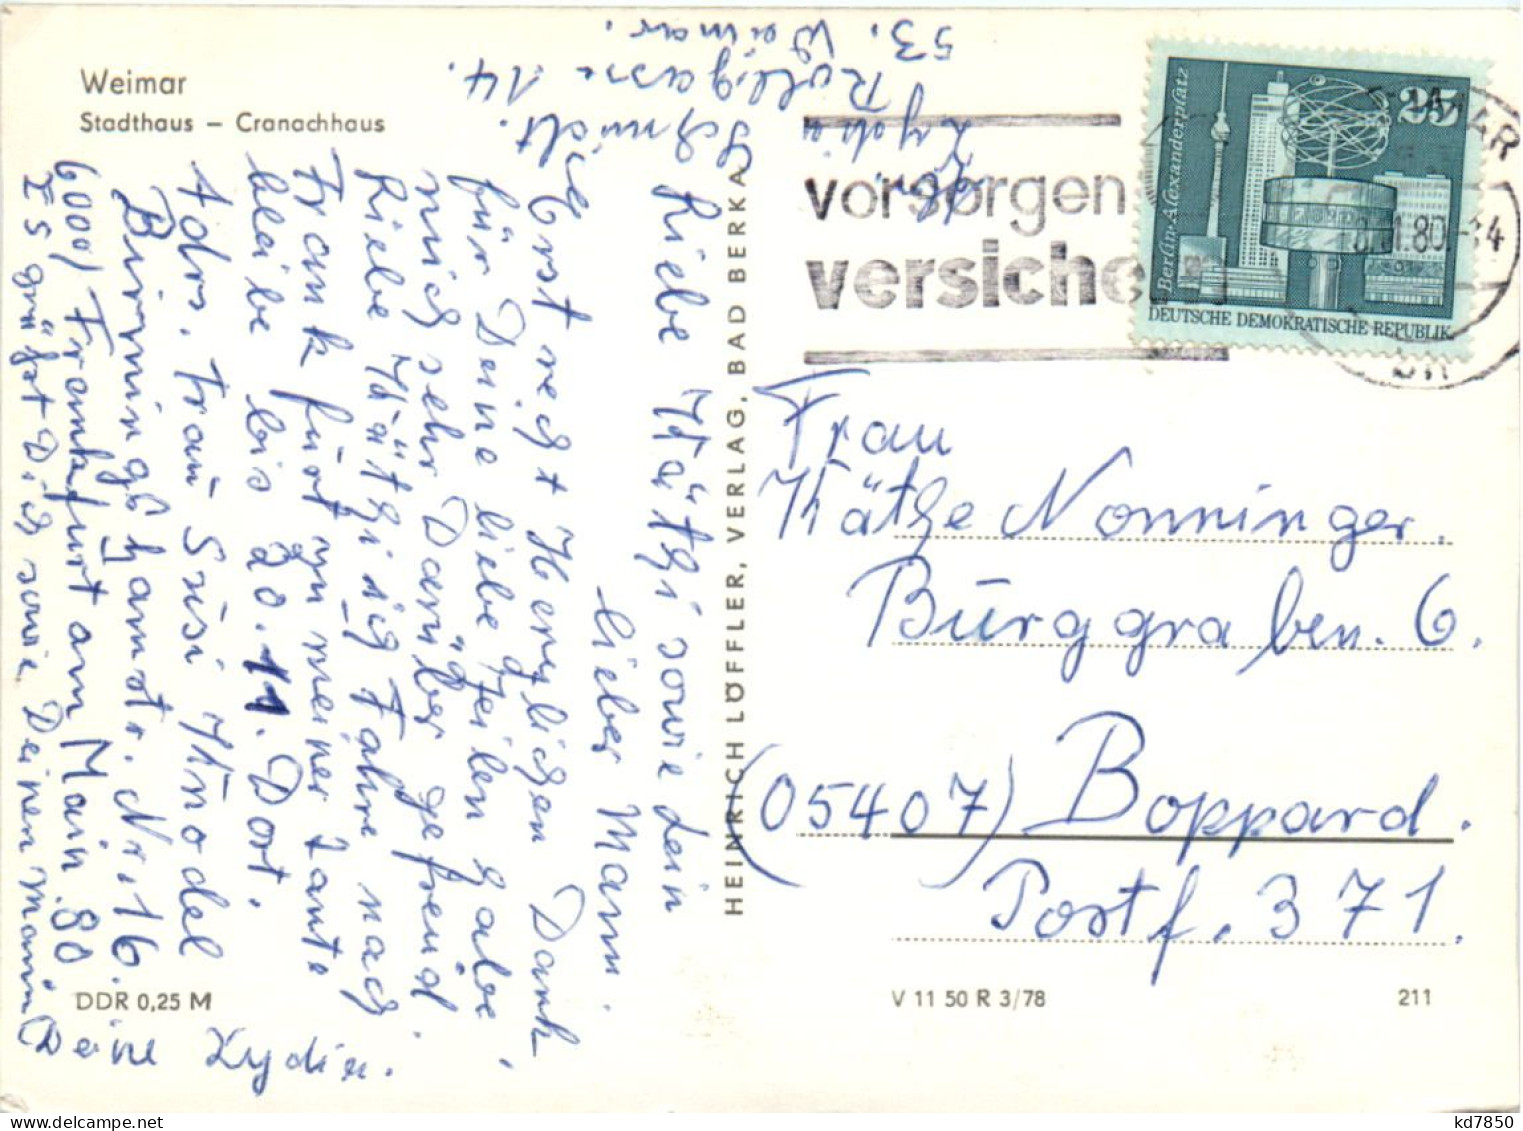 Weimar
Stadthaus – Cranachhaus
53. Weimar.
Rollgasse 14.
Lydia
Schmidt.
Abs.
Liebe Käthi sowie dein
lieber Mann.
Erst recht Herzlichen Dank
für Deine liebe Zeilen habe
mich sehr Darüber gefreud.
Liebe Käthi ich Fahre nach
Frankfurt zu meiner Tante
bleibe bis 20.11. Dort.
Adrs. Frau Susi Knodel
Birmingshamstr. Nr. 16.
6000/ Frankfurt am Main 80
Es grüßt Dich sowie Deinen Mann
Deine Lydia.
HEINRICH LÖFFLER, VERLAG, BAD BERKA
vorsorgen
versichern
Berlin-Alexanderplatz
25
DEUTSCHE DEMOKRATISCHE REPUBLIK
Frau
Käthe Nonninger.
Burggraben. 6.
(05407) Boppard.
Postf. 371.
DDR 0,25 M
V 11 50 R 3/78
211
kd7850